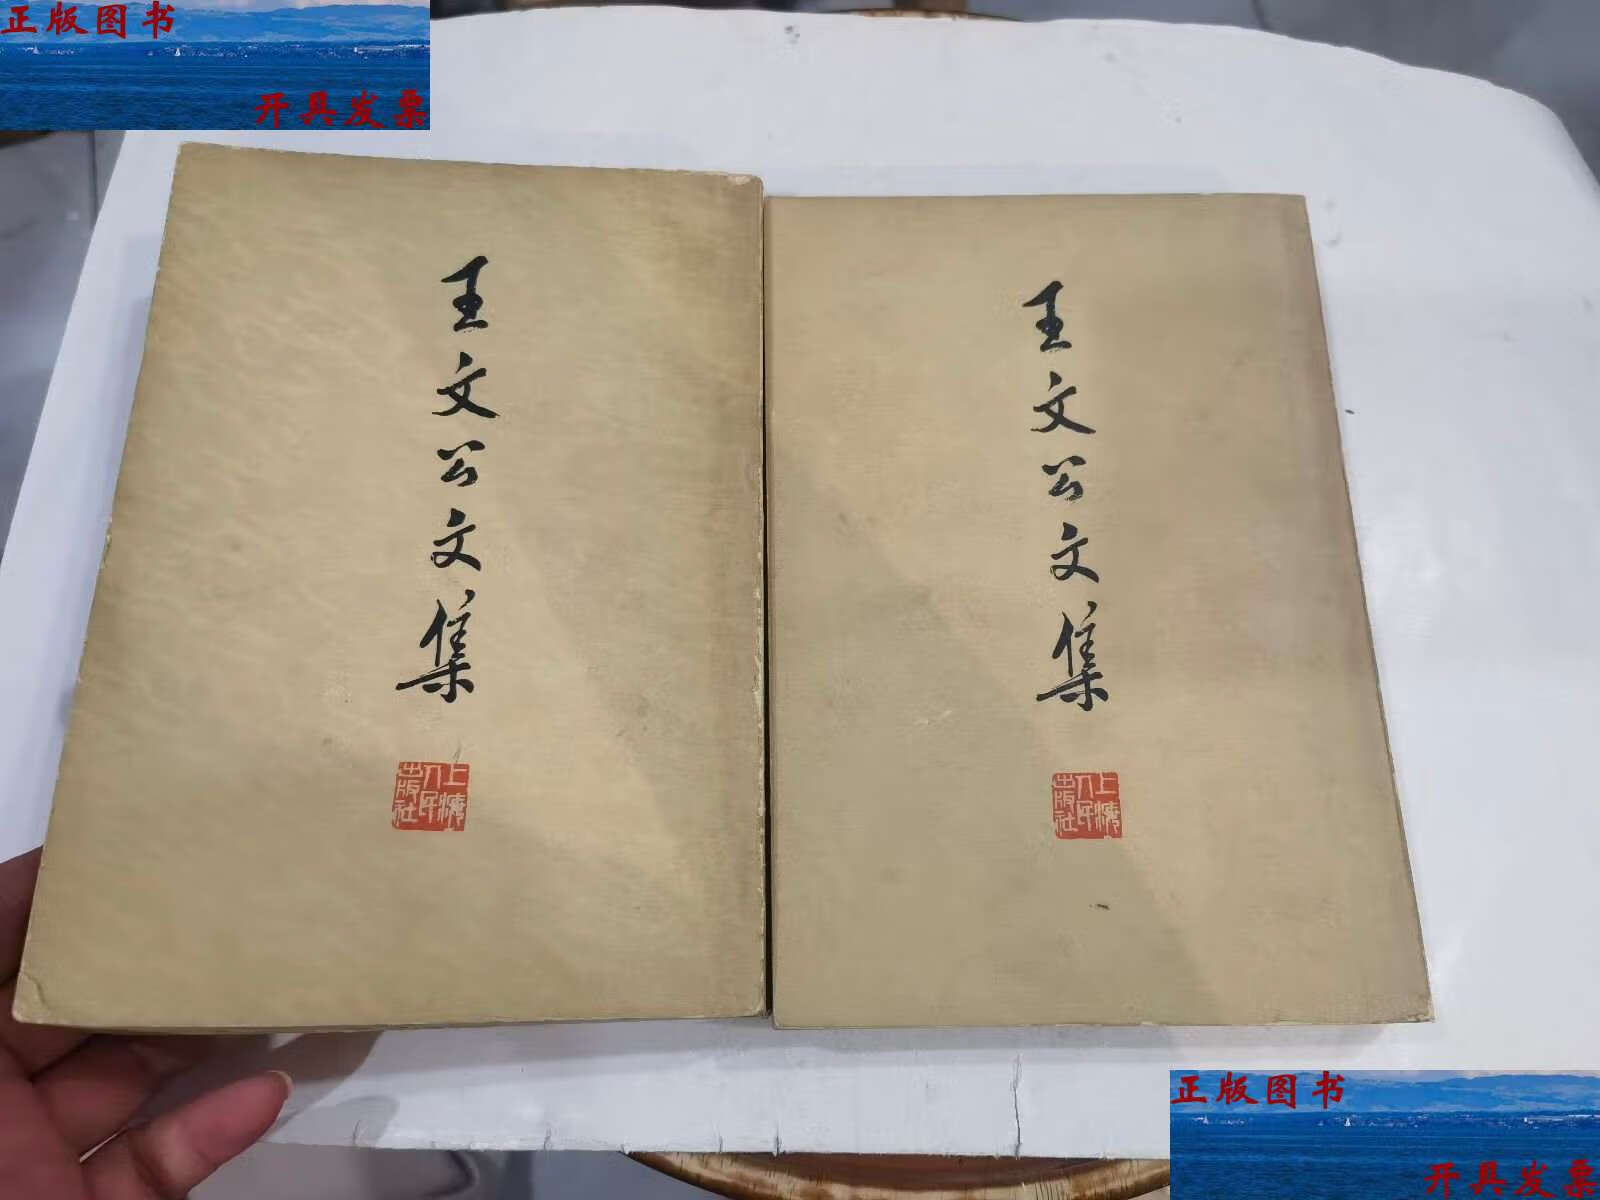 正版图书
开具发票
王文公文集
上海
人民
出版社
王文公文集
上海
人民
出版社
正版图书
开具发票